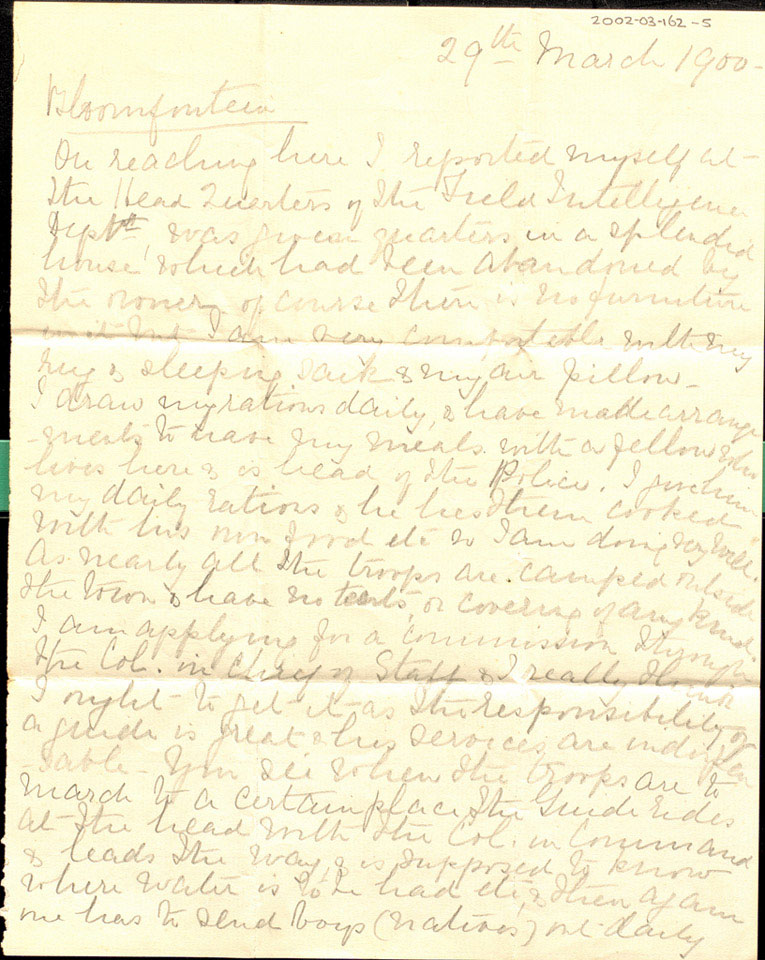 2002-03-162-5
29th March 1900-
Bloomfontein
On reaching here I reported myself at-
the Head Quarters of the Field Intelligence
Deptt, was given quarters in a splendid
house which had been abandoned by
the owner, of course there is no furniture
in it but I am very comfortable with my
rug & sleeping sack & my air pillow-
I draw my rations daily, & have made arrange
-ments to have my meals with a fellow who
lives here & is head of the Police. I give him
my daily rations & he has them cooked
with his own food etc so I am doing very well.
As nearly all the troops are camped outside
the town & have no tents, or covering of any kind.
I am applying for a commission through
the Col. in Chief of Staff & I really think
I ought to get it as the responsibility of
a guide is great & his services are indispen
-sable- You see when the troops are to
march to a certain place the Guide rides
at the head with the Col. in Command
& leads the way, & is supposed to know
where water is to be had etc, & then again
one has to send boys (natives) out daily